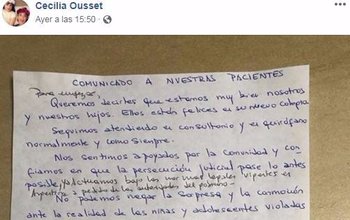 Cecilia Ousset
Ayer a las 15:50
COMUNICADO A NUESTRAS PACIENTES
Para empezar,
Queremos decirles que estamos muy bien nosotros
y nuestros hijos. Ellos están felices en su nuevo colegio
Seguimos atendiendo en consultorio y en quirófano
normalmente y como siempre.
Nos sentimos apoyados por la comunidad y con-
fiamos en que la persecución judicial pase lo antes
posible. Actuamos bajo las normas legales vigentes en
Argentina a pedido de las autoridades del
No podemos negar la sorpresa y la conmoción
ante la realidad de las niñas y adolescentes violadas